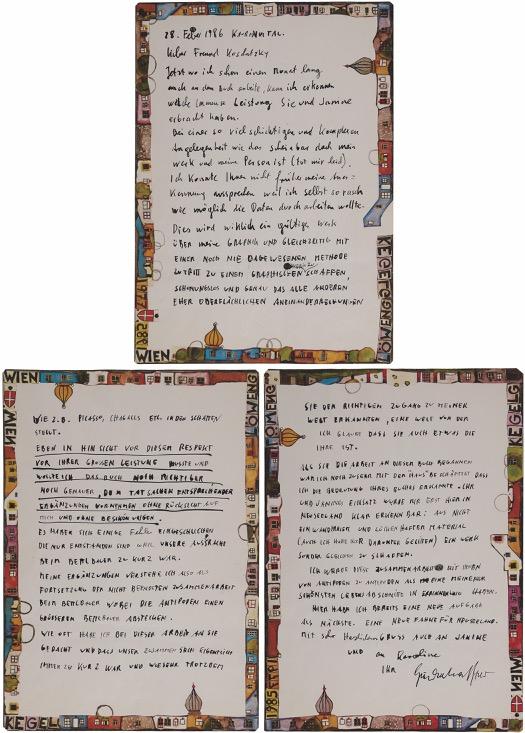 28. Feber 1986 KAURINUI TAL.
Lieber Freund Koschatzky
Jetzt wo ich schon einen Monat lang
auch an dem Buch arbeite, kann ich erkennen
welche immense Leistung Sie und Janine
erbracht haben.
Bei einer so vielschichtigen und komplexen
Angelegenheit wie das scheinbar doch mein
Werk und meine Person ist (tut mir leid).
Ich konnte Ihnen nicht früher meine Aner-
kennung aussprechen weil ich selbst so rasch
wie möglich die Daten durch arbeiten wollte.
Dies wird wirklich ein gültiges Werk
ÜBER MEINE GRAPHIK UND GLEICHZEITIG MIT
EINER NOCH NIE DAGEWESENEN METHODE
ZUTRITT ZU EINEM GRAPHISCHEN SCHAFFEN,
SCHONUNGSLOS UND GENAU DAS ALLE ANDEREN
EHER OBERFLÄCHLICHEN ANEINANDERREIHUNGEN
1985 EJPIL
WIEN
KEGELG
ÖMENG
WIEN
ÖMENG
WIEN
KEGEL
WIE Z.B. PICASSO, CHAGALLS ETC. IN DEN SCHATTEN
STELLT.
EBEN IN HINSICHT VOR DIESEM RESPEKT
VOR IHRER GROSSEN LEISTUNG MUSSTE UND
WOLLTE ICH DAS BUCH NOCH RICHTIGER,
NOCH GENAUER, DEM TATSACHEN ENTSPRECHENDER
ERGÄNZUNGEN VORNEHMEN OHNE RÜCKSICHT AUF
MICH UND OHNE BESCHÖNIGUNGEN.
ES HABEN SICH EINIGE Fehler EINGESCHLICHEN
DIE NUR ENTSTANDEN SIND WEIL UNSERE AUSSPRACHE
BEIM BEMELBAUER ZU KURZ WAR.
MEINE ERGÄNZUNGEN VERSTEHE ICH ALSO ALS
FORTSETZUNG DER NICHT BEENDETEN ZUSAMMENARBEIT
BEIM BEMELBAUER WOBEI DIE ANTIPODEN EINEN
GRÖSSEREN BEMELBAUER ABGEBEN.
WIE OFT HABE ICH BEI DIESER ARBEIT AN SIE
GEDACHT UND DASS UNSER ZUSAMMENSEIN EIGENTLICH
IMMER ZU KURZ WAR UND WIESEHR TROTZDEM
ÖMENG
KEGELG
1985 EJPIL
WIEN
SIE DEN RICHTIGEN ZUGANG ZU MEINER
WELT ERKANNTEN, EINE WELT VON DER
ICH GLAUBE DASS SIE AUCH ETWAS DIE
IHRE IST.
ALS SIE DIE ARBEIT AN DIESEM BUCH BEGANNEN
WAR ICH NOCH ZU SEHR MIT DEM HAUS BESCHÄFTIGT DASS
ICH DIE BEDEUTUNG IHRES WERKES ERKANNTE. IHR
UND JANINES EINSATZ WURDE MIR ERST HIER IN
NEUSEELAND KLAR ERKENNBAR: AUS NICHT
EINWANDFREIEM UND LÜCKENHAFTEM MATERIAL
(AUCH ICH HABE HIER DARUNTER GELITTEN) EIN WERK
SONDERGLEICHEN ZU SCHAFFEN.
ICH WERDE DIESE ZUSAMMENARBEIT MIT IHNEN
VON ANTIPODEN ZU ANTIPODEN ALS EINE MEINER
SCHÖNSTEN LEBENSABSCHNITTE IN ERINNERUNG HABEN.
HIER HABE ICH BEREITS EINE NEUE AUFGABE
ALS NÄCHSTE. EINE NEUE FAHNE FÜR NEUSEELAND.
Mit sehr Herzlichem GRUSS AUCH AN JANINE
und an Karoline
Ihr Hundertwasser